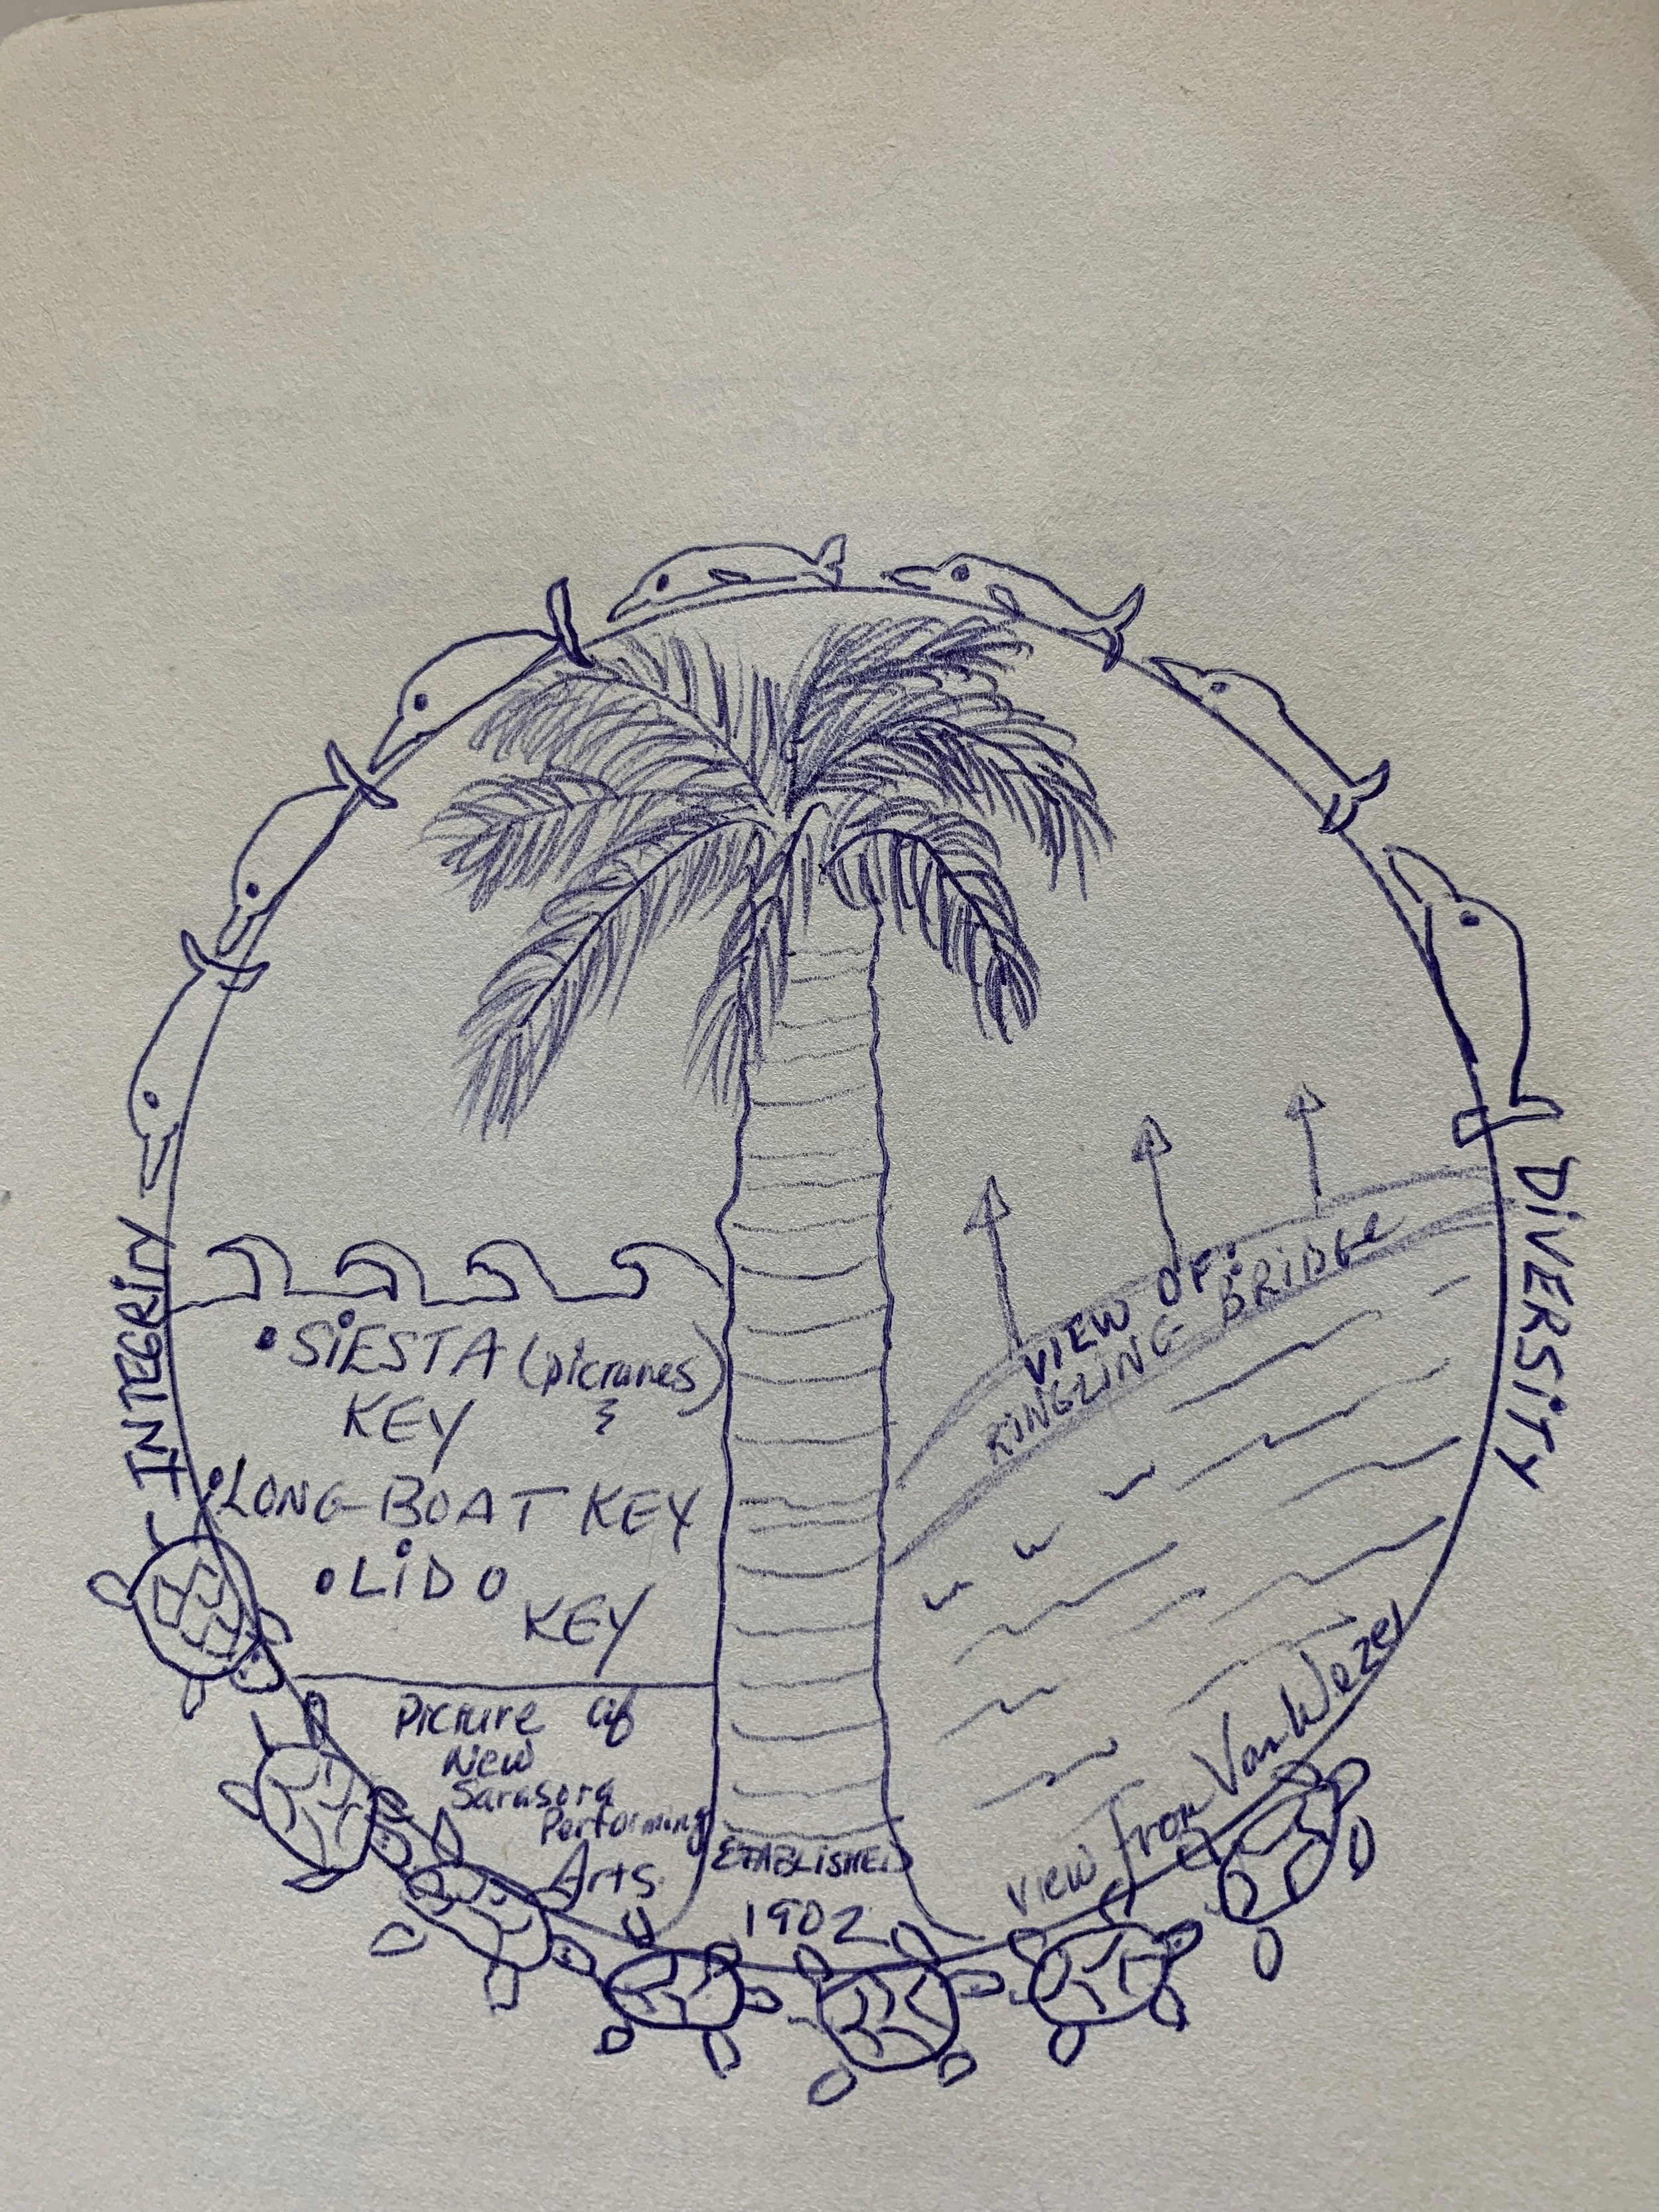 INTEGRITY
DIVERSITY
• SIESTA (pictures)
KEY &
• LONG-BOAT KEY
• LIDO
KEY
VIEW OF:
RINGLING BRIDGE
Picture of
New
Sarasota
Performing
Arts
ESTABLISHED
1902
View From Van Wezel